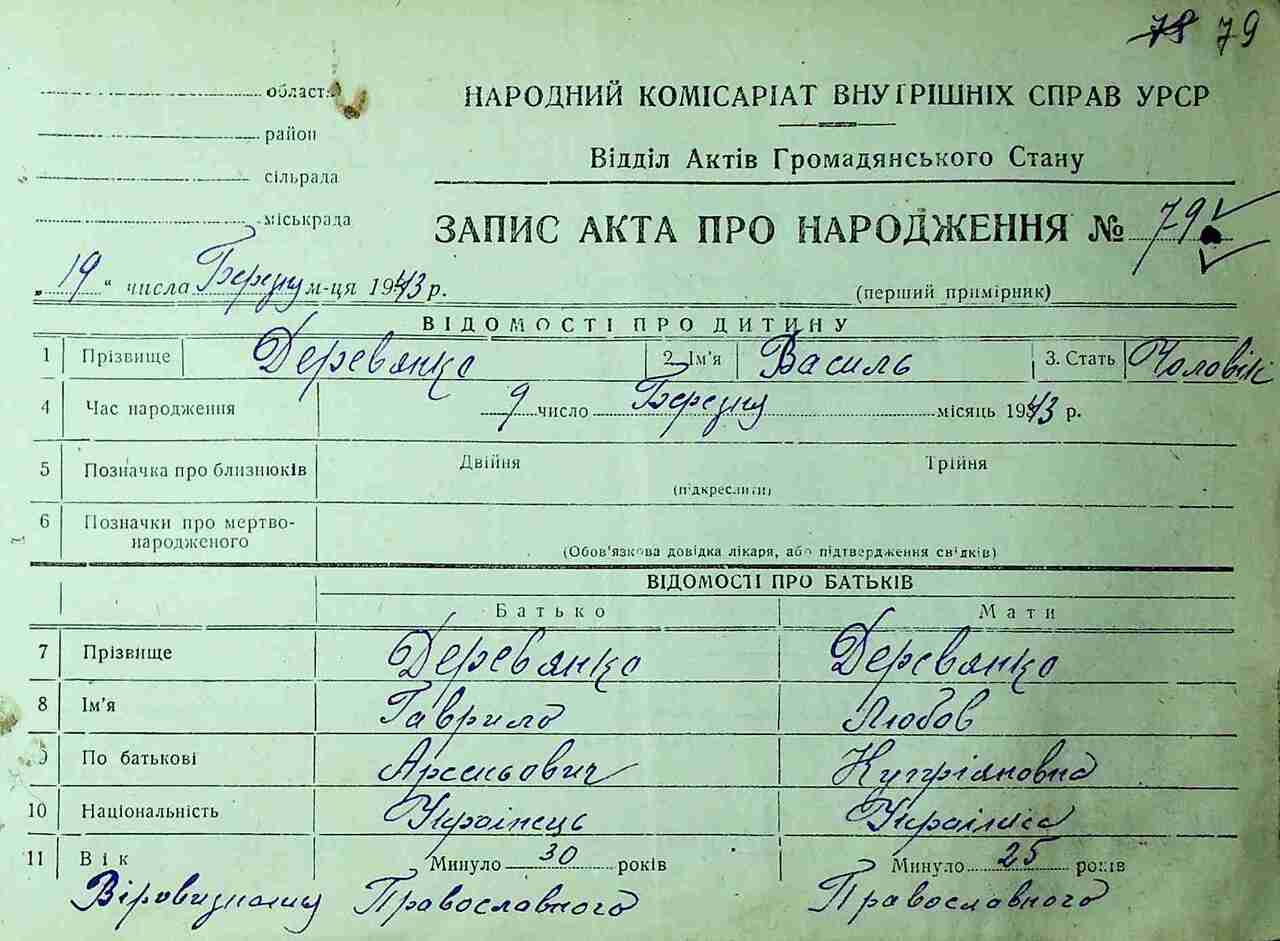 78 79
область
район
сільрада
міськрада
НАРОДНИЙ КОМІСАРІАТ ВНУТРІШНІХ СПРАВ УРСР
Відділ Актів Громадянського Стану
ЗАПИС АКТА ПРО НАРОДЖЕННЯ № 79
„19“ числа Березня м-ця 1943 р.
(перший примірник)
ВІДОМОСТІ ПРО ДИТИНУ
1 Прізвище Деревянко 2 Ім'я Василь 3. Стать Чоловік
4 Час народження 9 число Березня місяць 1943 р.
5 Позначка про близнюків Двійня Трійня
(підкреслити)
6 Позначки про мертво-
народженого
(Обов'язкова довідка лікаря, або підтвердження свідків)
ВІДОМОСТІ ПРО БАТЬКІВ
Батько Мати
7 Прізвище Деревянко Деревянко
8 Ім'я Гаврило Любов
9 По батькові Арсеньович Купріяновна
10 Національність Українець Українка
11 Вік Минуло 30 років Минуло 25 років
Віровизнання Православного Православного